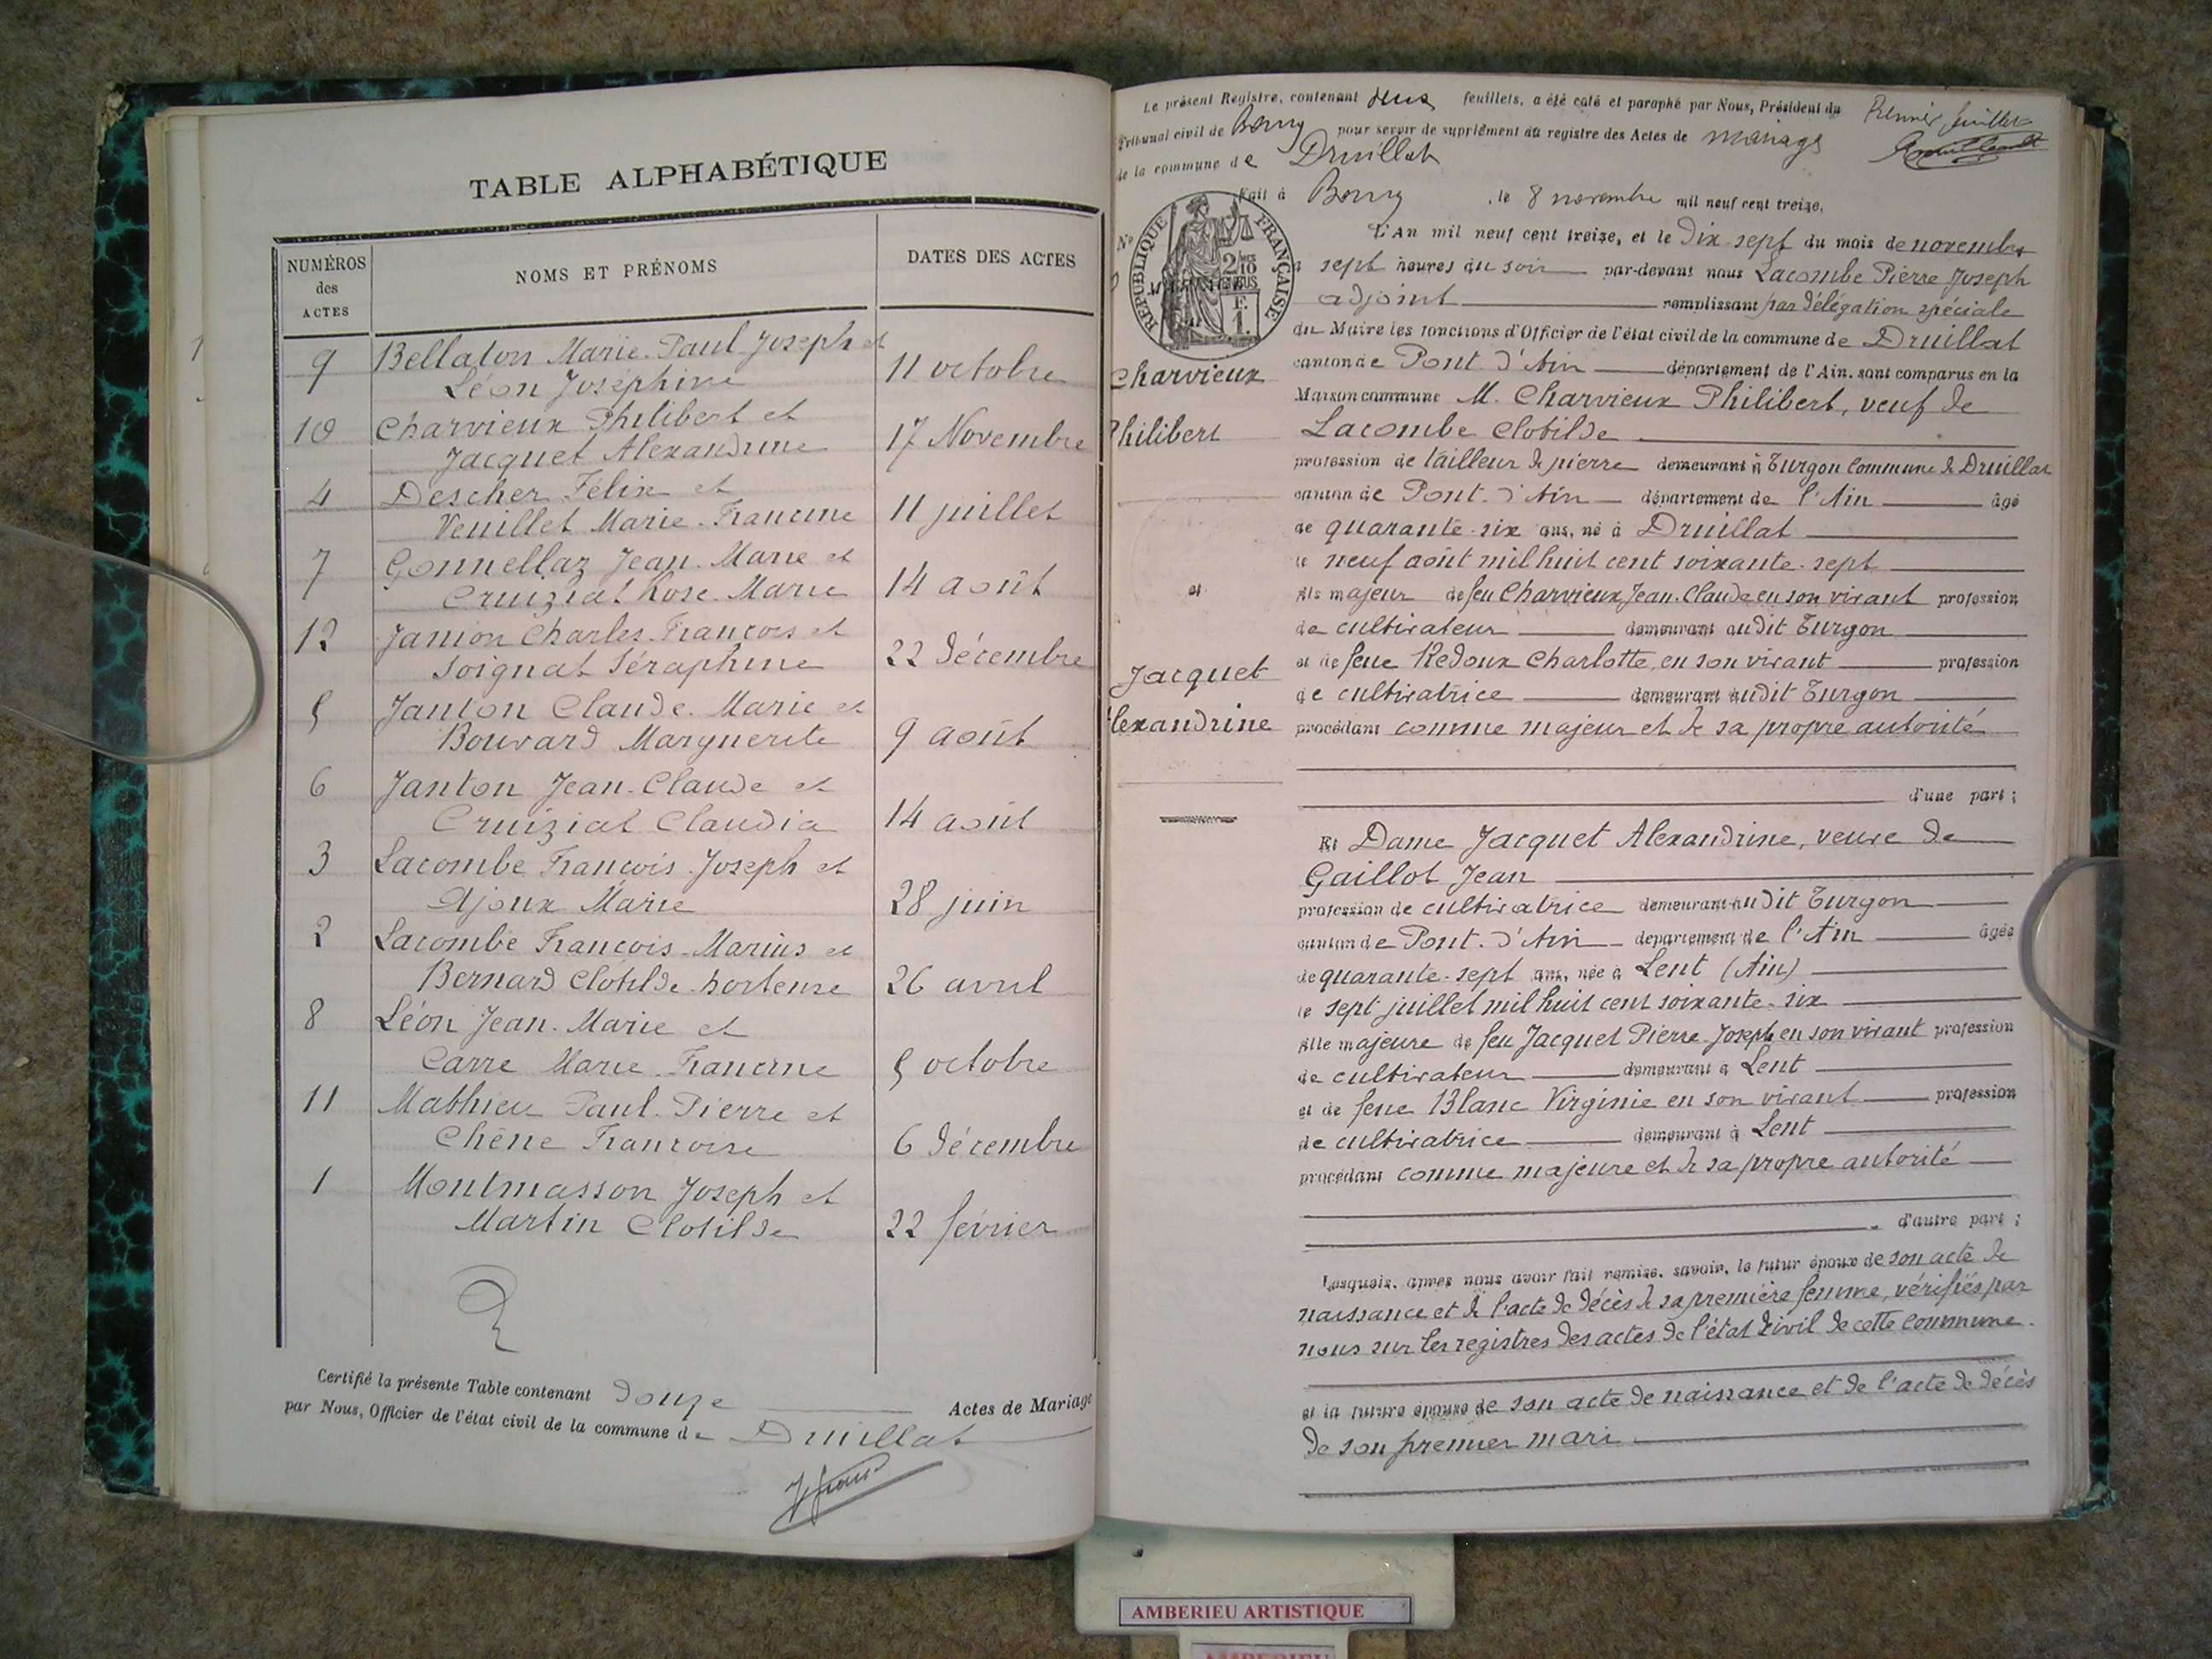 TABLE ALPHABÉTIQUE
NUMÉROS des ACTES
NOMS ET PRÉNOMS
DATES DES ACTES
9 Bellaton Marie-Paul-Joseph et
Léon Joséphine 11 octobre
10 Charvieux Philibert et
Jacquet Alexandrine 17 Novembre
4 Descher Félix et
Veuillet Marie-Francine 11 juillet
7 Gonnellaz Jean-Marie et
Cruiziat Rose-Marie 14 août
12 Janion Charles-François et
Soignat Séraphine 22 décembre
5 Janton Claude-Marie et
Bouvard Marguerite 9 août
6 Janton Jean-Claude et
Cruiziat Claudia 14 août
3 Lacombe François-Joseph et
Ajoux Marie 28 juin
2 Lacombe François-Marius et
Bernard Clotilde-hortense 26 avril
8 Léon Jean-Marie et
Carre Marie-Francine 5 octobre
11 Mathieu Paul-Pierre et
Chêne Françoise 6 décembre
1 Montmasson Joseph et
Martin Clotilde 22 février
Certifié la présente Table contenant douze Actes de Mariage
par Nous, Officier de l'état civil de la commune de Druillat
Le présent Registre, contenant deux feuillets, a été coté et paraphé par Nous, Président du
Tribunal civil de Bourg pour servir de supplément au registre des Actes de mariage
de la commune de Druillat
Premier feuillet
Fait à Bourg, le 8 novembre mil neuf cent treize.
RÉPUBLIQUE FRANÇAISE
2/10 EN SUS
F.
1.
N°
L'An mil neuf cent treize, et le dix-sept du mois de novembre
sept heures du soir par-devant nous Lacombe Pierre Joseph
adjoint remplissant par délégation spéciale
du Maire les fonctions d'Officier de l'état civil de la commune de Druillat
canton de Pont-d'Ain département de l'Ain, sont comparus en la
Maison commune M. Charvieux Philibert, veuf de
Lacombe Clotilde
Charvieux
Philibert
et
Jacquet
lexandrine
profession de tailleur de pierre demeurant à Turgon commune de Druillat
canton de Pont-d'Ain département de l'Ain âgé
de quarante-six ans, né à Druillat
le neuf août mil huit cent soixante-sept
fils majeur de feu Charvieux Jean-Claude en son vivant profession
de cultivateur demeurant audit Turgon
et de feue Redoux Charlotte, en son vivant profession
de cultivatrice demeurant audit Turgon
procédant comme majeur et de sa propre autorité
d'une part ;
Et Dame Jacquet Alexandrine, veuve de
Gaillot Jean
profession de cultivatrice demeurant audit Turgon
canton de Pont-d'Ain département de l'Ain âgée
de quarante-sept ans, née à Lent (Ain)
le sept juillet mil huit cent soixante-six
fille majeure de feu Jacquet Pierre-Joseph en son vivant profession
de cultivateur demeurant à Lent
et de feue Blanc Virginie en son vivant profession
de cultivatrice demeurant à Lent
procédant comme majeure et de sa propre autorité
d'autre part ;
Lesquels, après nous avoir fait remise, savoir, le futur époux de son acte de
naissance et de l'acte de décès de sa première femme, vérifiés par
nous sur les registres des actes de l'état civil de cette commune.
et la future épouse de son acte de naissance et de l'acte de décès
de son premier mari
AMBERIEU ARTISTIQUE
AMBERIEU